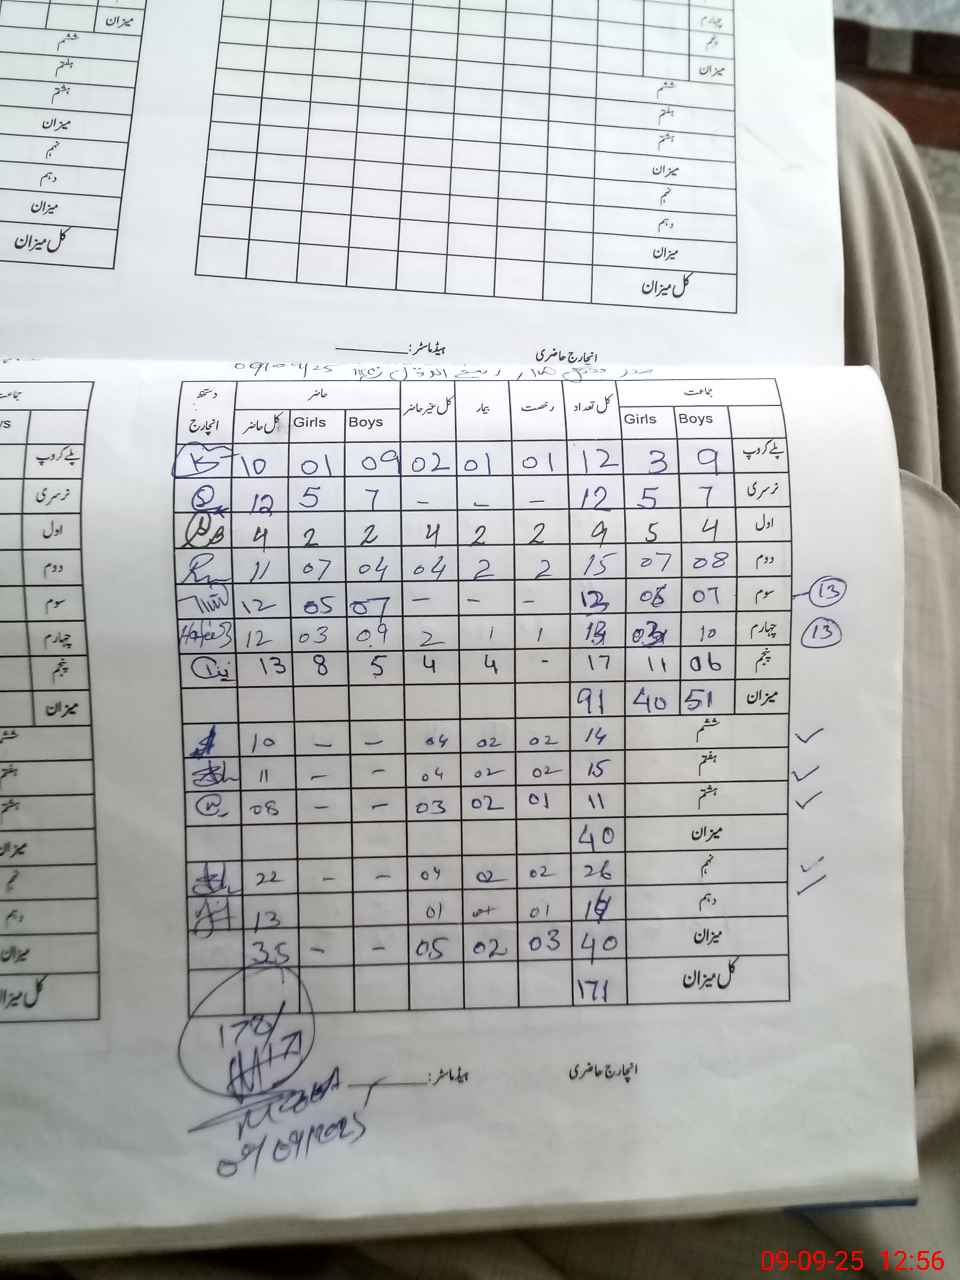 میزان
ششم
ہفتم
ہشتم
میزان
نہم
دہم
میزان
کل میزان
چہارم
پنجم
میزان
ششم
ہفتم
ہشتم
میزان
نہم
دہم
میزان
کل میزان
انچارج حاضری ہیڈماسٹر:
09/09/25
جماعت کل تعداد رخصت بیمار کل غیر حاضر حاضر دستخط انچارج
Boys Girls Boys Girls کل حاضر
پلے گروپ 9 3 12 01 01 02 09 01 10
نرسری 7 5 12 – – – 7 5 12
اول 4 5 9 2 2 4 2 2 4
دوم 08 07 15 2 2 04 04 07 11
13 سوم 07 – – – 07 05 12
13 چہارم 10 1 1 2 09 03 12 Hafeez
پنجم 06 11 17 - 4 4 5 8 13
میزان 51 40 91
ششم 14 02 02 04 – – 10
ہفتم 15 02 02 04 – – 11
ہشتم 11 01 02 03 – – 08
میزان 40
نہم 26 02 02 04 – – 22
دہم 01 01 13
میزان 40 03 02 05 – – 35
کل میزان 171
انچارج حاضری ہیڈماسٹر:
09/09/2025
پلے گروپ
نرسری
اول
دوم
سوم
چہارم
پنجم
میزان
ہفتم
ہشتم
میزان
نہم
دہم
میزان
کل میزان
09-09-25 12:56